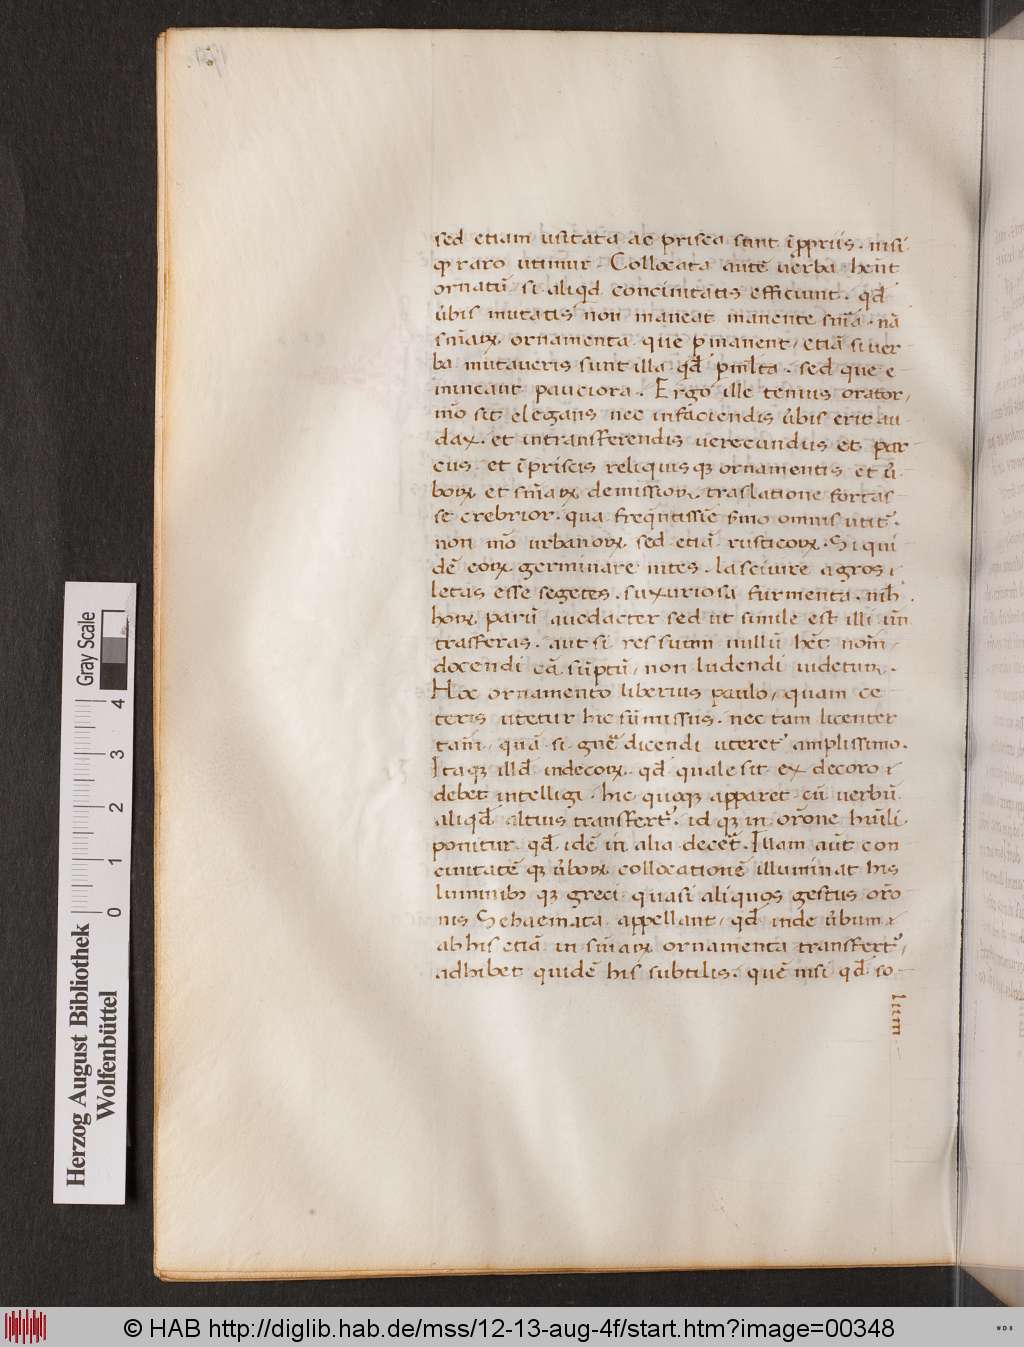 sed etiam usitata ac prisca sunt ĩppriis. nisi
ꝙ raro utimur. Collocata autẽ uerba hent
ornatũ, si aliqd concinitatis efficiunt. qd̃
ũbis mutatis non maneat manente sñia. nã
sñiaꝝ. ornamenta que pmanent, etiã si uer
ba mutaueris sunt illa qd̃ pmlta. sed que e
mineant pauciora. Ergo ille tenuis orator,
mõ sit elegans nec infaciendis ũbis erit au
dax. et intransferendis uerecundus et par
cus. et ĩpriscis reliquisqꝫ ornamentis et ũ
boꝝ, et sñiaꝝ demissioꝝ. traslatione fortas
se crebrior. qua freqntissiẽ sm̃o omnis utit᷑.
non mõ urbanoꝝ. sed etiã rusticoꝝ. Siqui
dẽ eoꝝ. germinare uites. lasciuire agros,
letas esse segetes. luxuriosa furmenta. nih̃
hoꝝ. parũ audacter sed ut simile est illi ũn
trasferas. aut si res suum nullũ het nom̃,
docendi cã sũptũ, non ludendi uidetur.
Hoc ornamento liberius paulo, quam ce
teris utetur hic sũmissus. nec tam licenter
tam̃, quã si gnẽ dicendi uteret᷑ amplissimo.
Itaqꝫ illd̃ indecoꝝ. qd̃ quale sit ex decoro
debet intelligi. hic quoqꝫ apparet cũ uerbũ
aliqd̃ altius transfert᷑. id qꝫ in orõne humili
ponitur. qd̃ idẽ in alia decet̃. Illam aũt con
cinitatẽ qꝫ ũboꝝ collocationẽ illuminat his
luminibꝫ qꝫ greci quasi aliquos gestus orõ
nis Schaemata appellant, qd̃ inde ũbum
ab his etiã in sñiaꝝ ornamenta transfert᷑,
adhibet quidẽ his subtilis. quẽ nisi qd̃ so
lum
Gray Scale
0 1 2 3 4
Herzog August Bibliothek
Wolfenbüttel
© HAB http://diglib.hab.de/mss/12-13-aug-4f/start.htm?image=00348